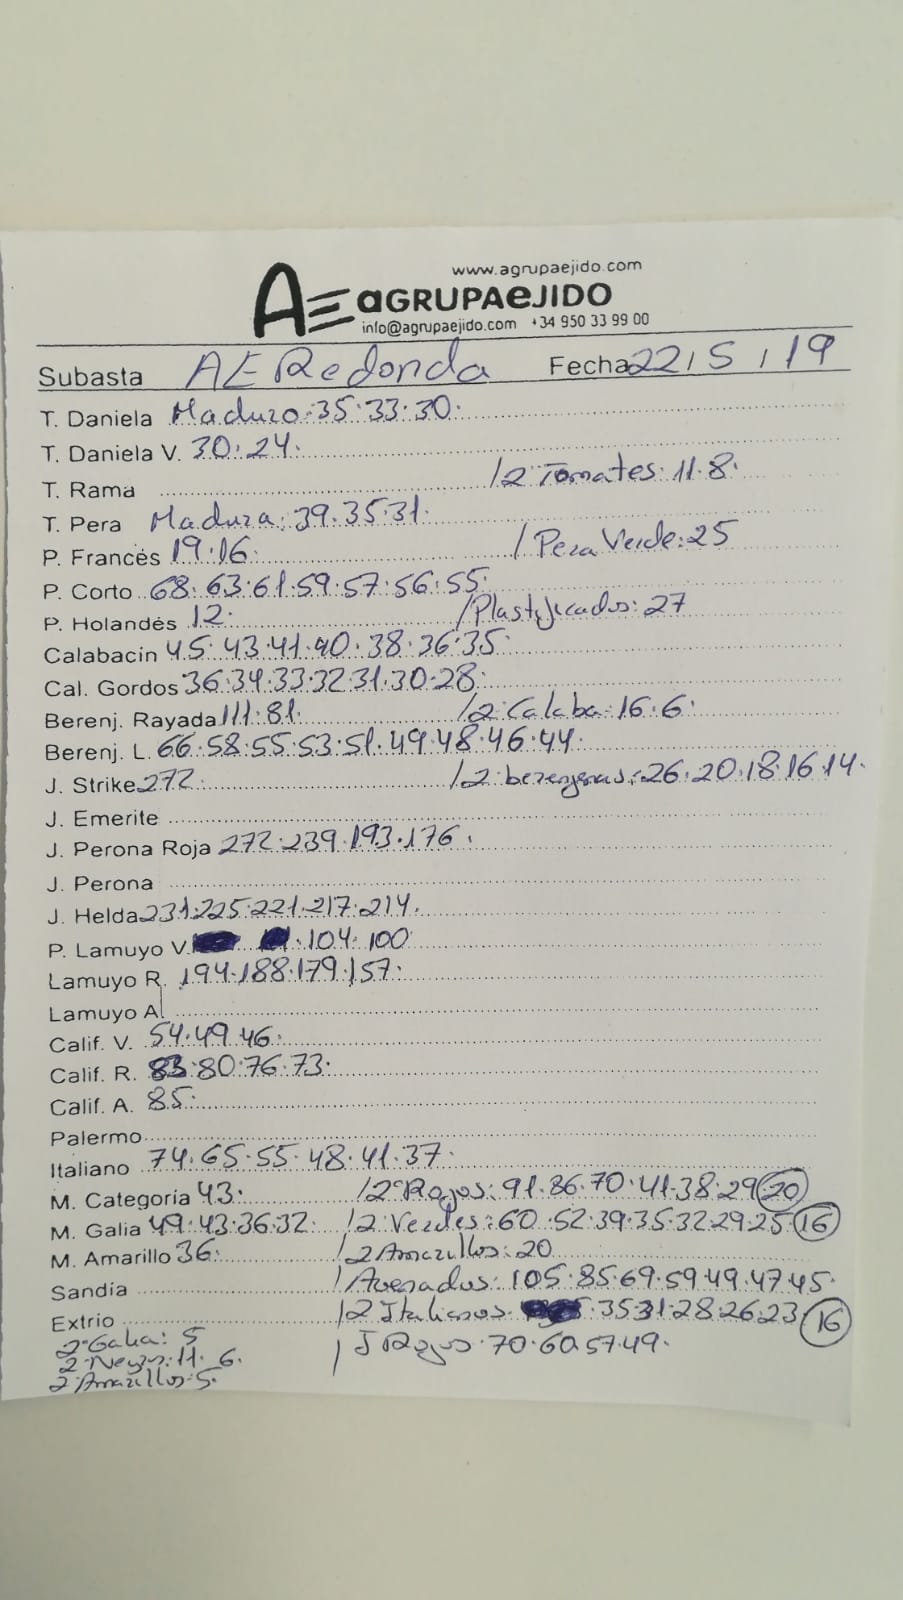 www.agrupaejido.com
AE aGRUPAeJIDO
info@agrupaejido.com +34 950 33 99 00
Subasta AE Redonda Fecha 22/5/19
T. Daniela Maduro: 35·33·30·
T. Daniela V. 30·24·
T. Rama /2ª Tomates: 11·8·
T. Pera Madura: 39·35·31·
P. Francés 19·16· / Pera Verde: 25
P. Corto 68·63·61·59·57·56·55·
P. Holandés 12· /Plastificados: 27
Calabacin 45·43·41·40·38·36·35·
Cal. Gordos 36·34·33·32·31·30·28·
Berenj. Rayada 111·81· /2ª Calaba: 16·6·
Berenj. L. 66·58·55·53·51·49·48·46·44·
J. Strike 272· /2ª berenjenas: 26·20·18·16·14·
J. Emerite
J. Perona Roja 272·239·193·176·
J. Perona
J. Helda 231·225·221·217·214·
P. Lamuyo V. ·104·100
Lamuyo R. 194·188·179·157·
Lamuyo A
Calif. V. 54·49·46·
Calif. R. 83·80·76·73·
Calif. A. 85·
Palermo
Italiano 74·65·55·48·41·37·
M. Categoria 43· /2ª Rojos: 91·86·70·41·38·29 20
M. Galia 49·43·36·32· /2 Verdes: 60·52·39·35·32·29·25 16
M. Amarillo 36· /2 Amarillos: 20
Sandía /Asurados: 105·85·69·59·49·47·45·
Extrio /2 Italianos ·35·31·28·26·23 16
2ª Galia: 5 / J Rojos·70·60·57·49·
2ª Negro: 11·6·
2ª Amarillos: 5·